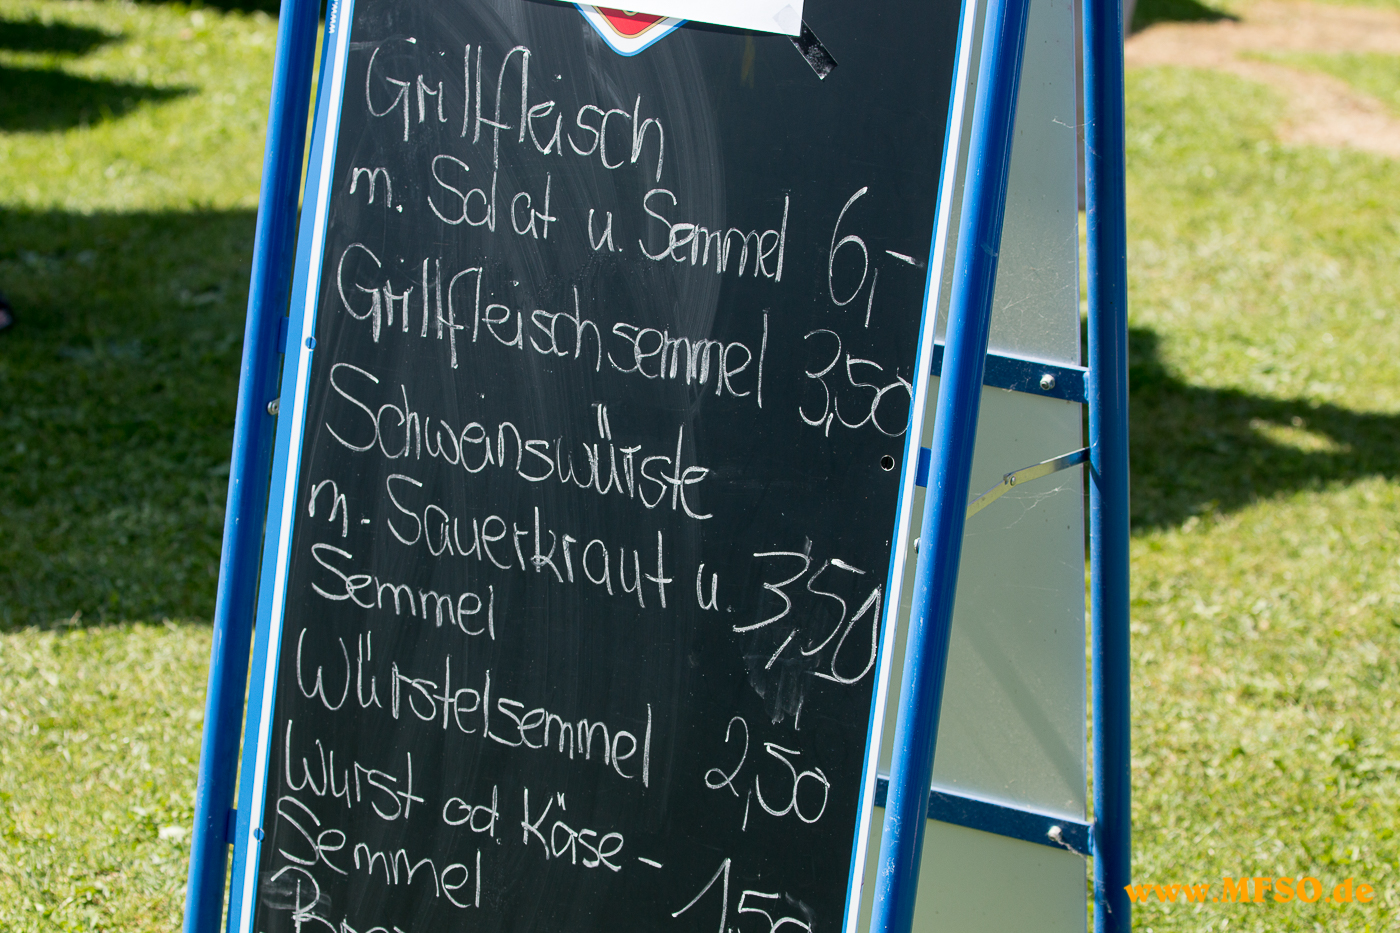 Grillfleisch
m. Salat u. Semmel 6,-
Grillfleischsemmel 3,50
Schweinswürste
m. Sauerkraut u. 3,50
Semmel
Würstelsemmel 2,50
Wurst od. Käse-
Semmel 1,50
www.MFSO.de